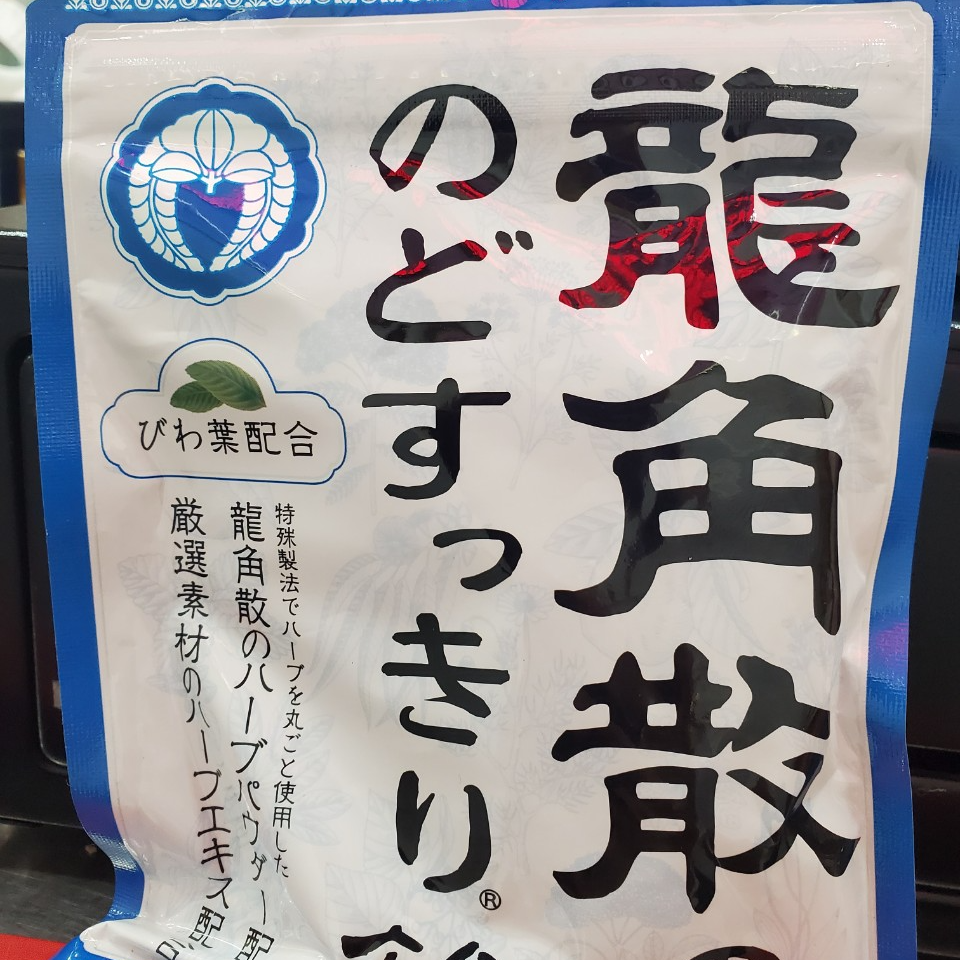 龍角散の
のどすっきり®飴
びわ葉配合
特殊製法でハーブを丸ごと使用した
龍角散のハーブパウダー配
厳選素材のハーブエキス配合